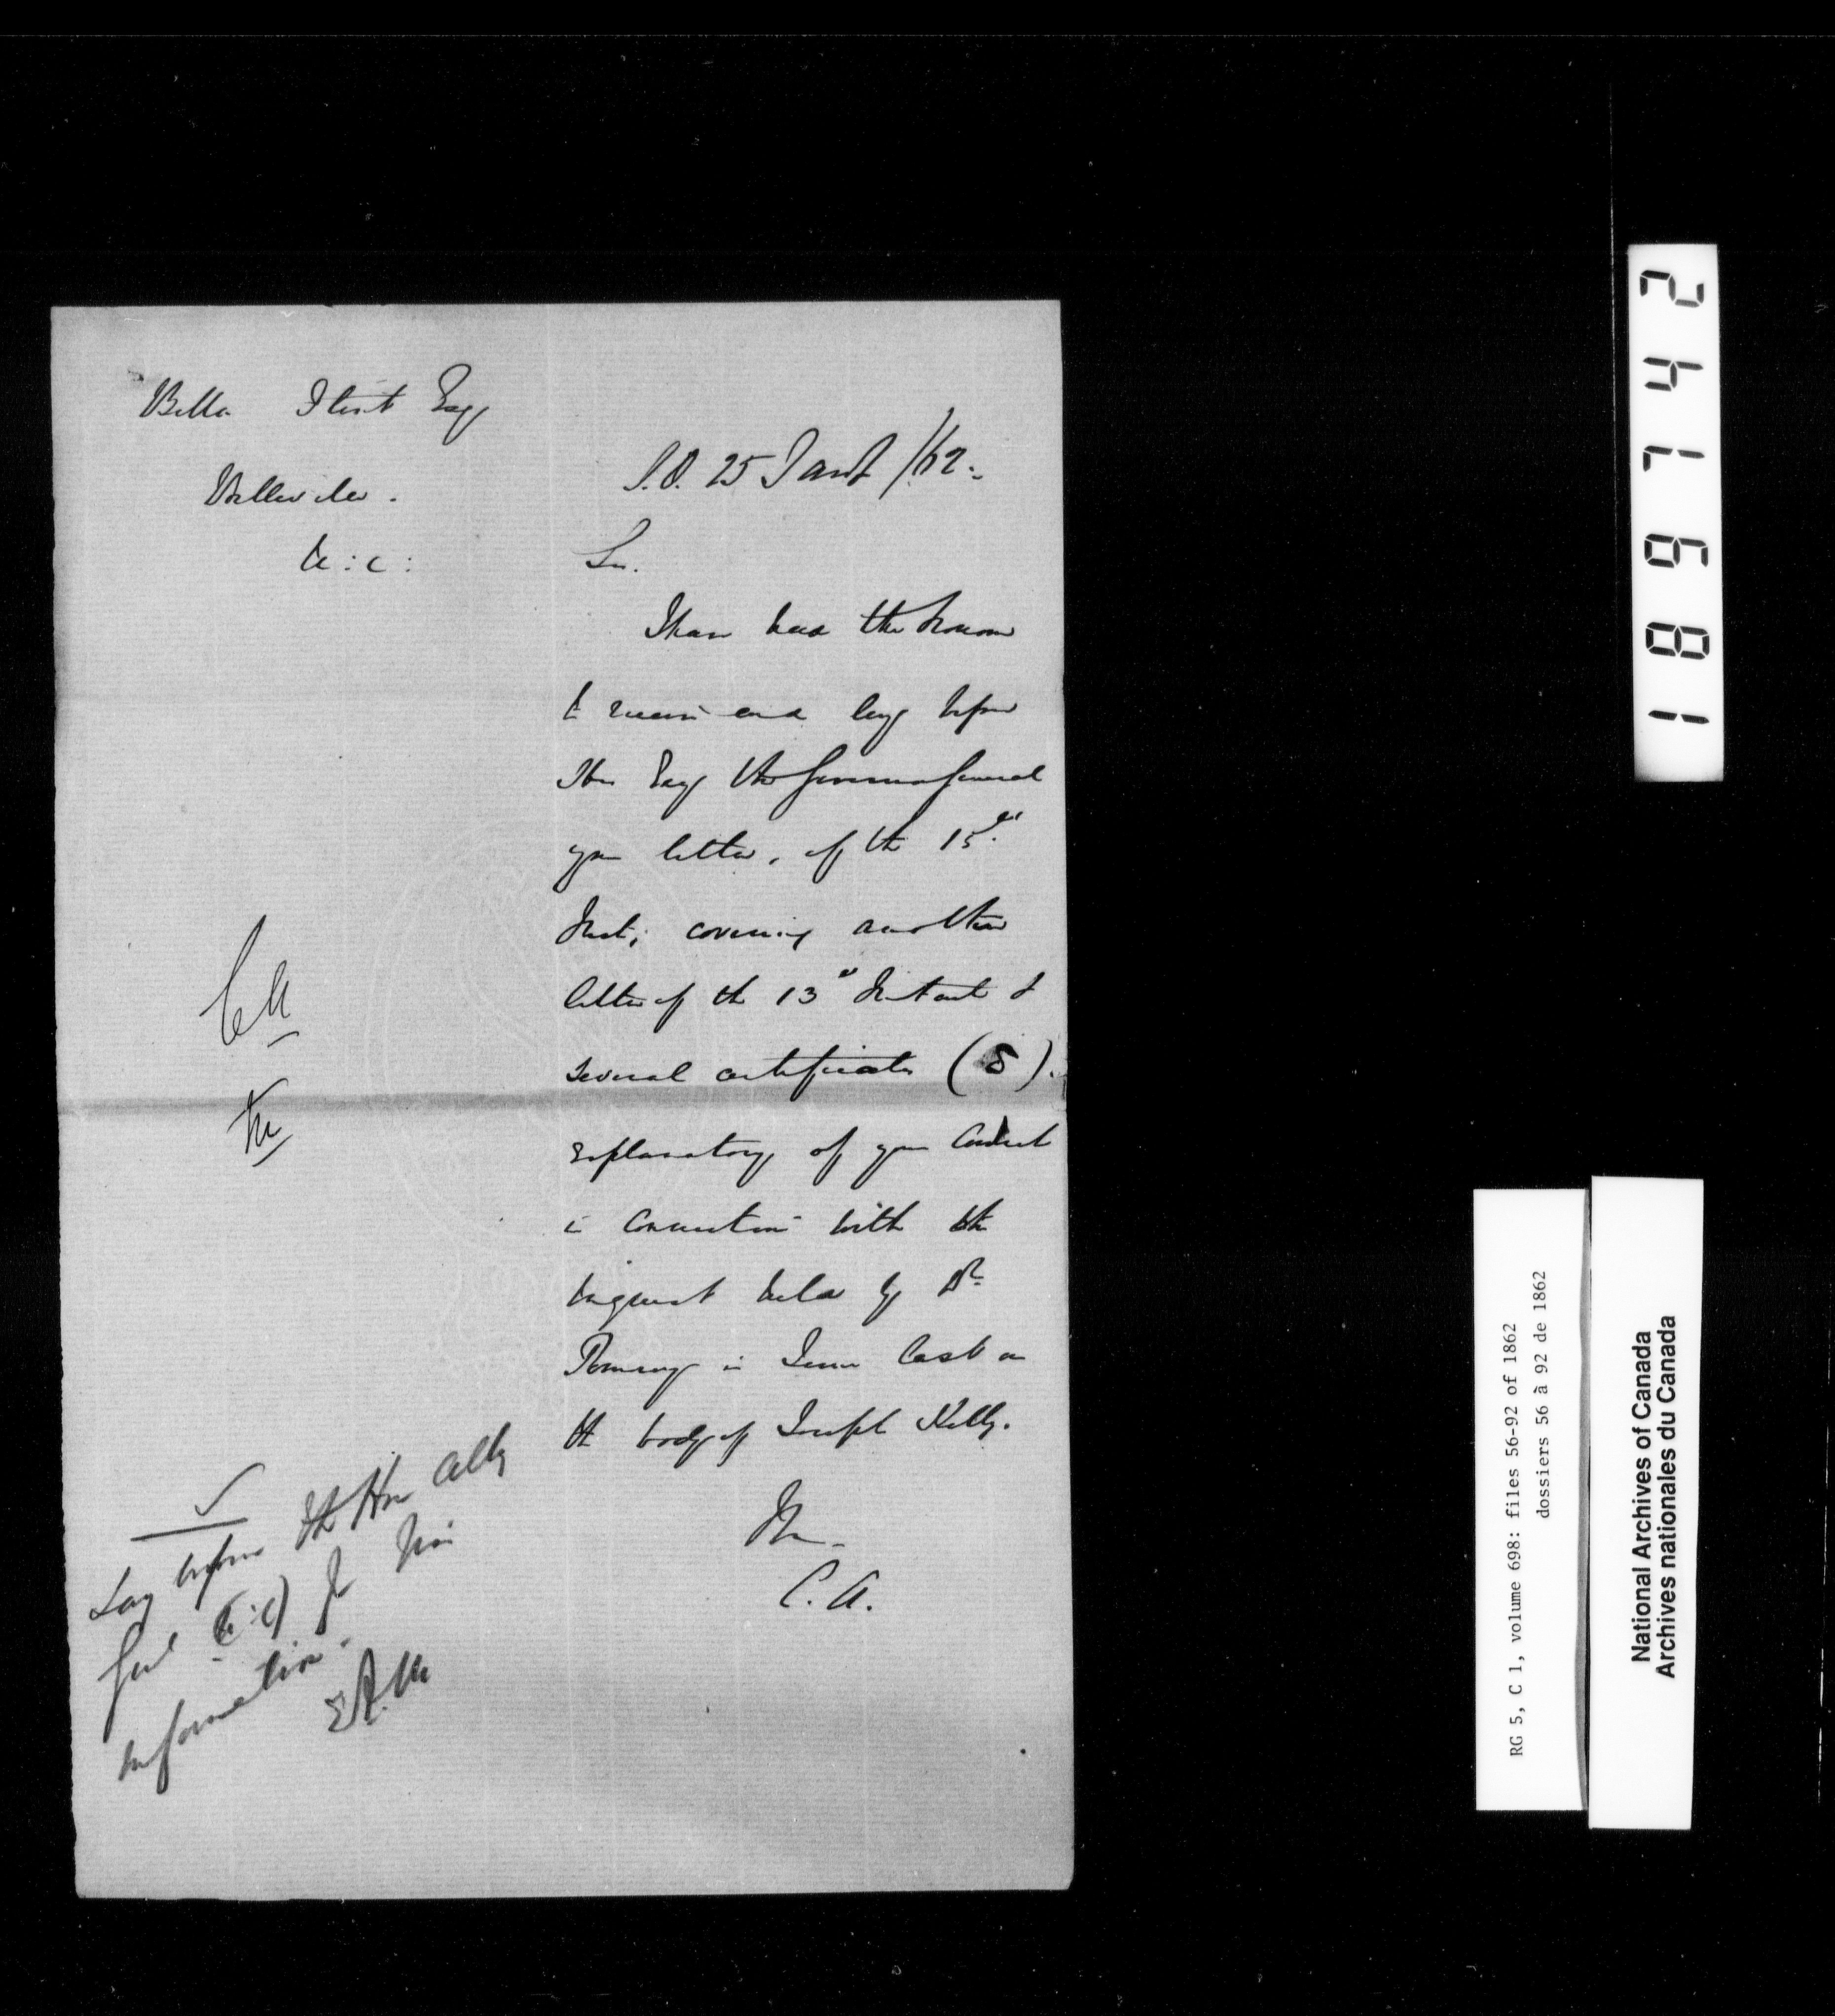 Billa Flint Esq
Belleville.
U:C:
S.O. 25 Jany /62.
Sir.
I have had the honour
to receive and lay before
His Excy the Governor General
your letter, of the 15th
Inst, covering another
letter of the 13th Instant &
several certificates (8).
explanatory of your conduct
in connection with the
inquest held by Dr
Pomeroy in June last on
the body of Joseph Kelly.
I h
C. A.
Lay before the Hon Atty
Genl (U:C) for his
information.
EAM
189742
RG 5, C 1, volume 698: files 56-92 of 1862
dossiers 56 à 92 de 1862
National Archives of Canada
Archives nationales du Canada